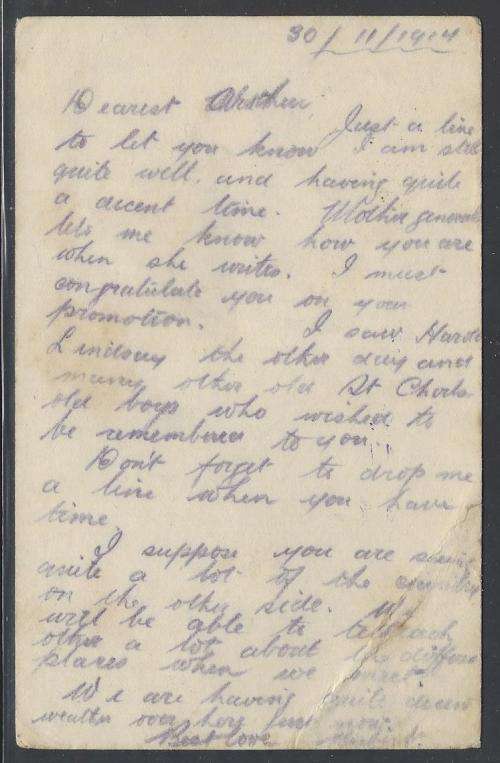 30/11/1914
Dearest
Just a line
to let you know I am still
quite well and having quite
a decent time. Mother generally
lets me know how you are
when she writes. I must
congratulate you on your
promotion. I saw Harold
Lindsay the other day and
many other old St Charles
old boys who wished to
be remembered to you.
Don't forget to drop me
a line when you have
time.
I suppose you are seeing
quite a lot of the country
on the other side. We
will be able to tell each
other a lot about the different
places when we meet.
We are having quite decent
weather over here just now.
Best love